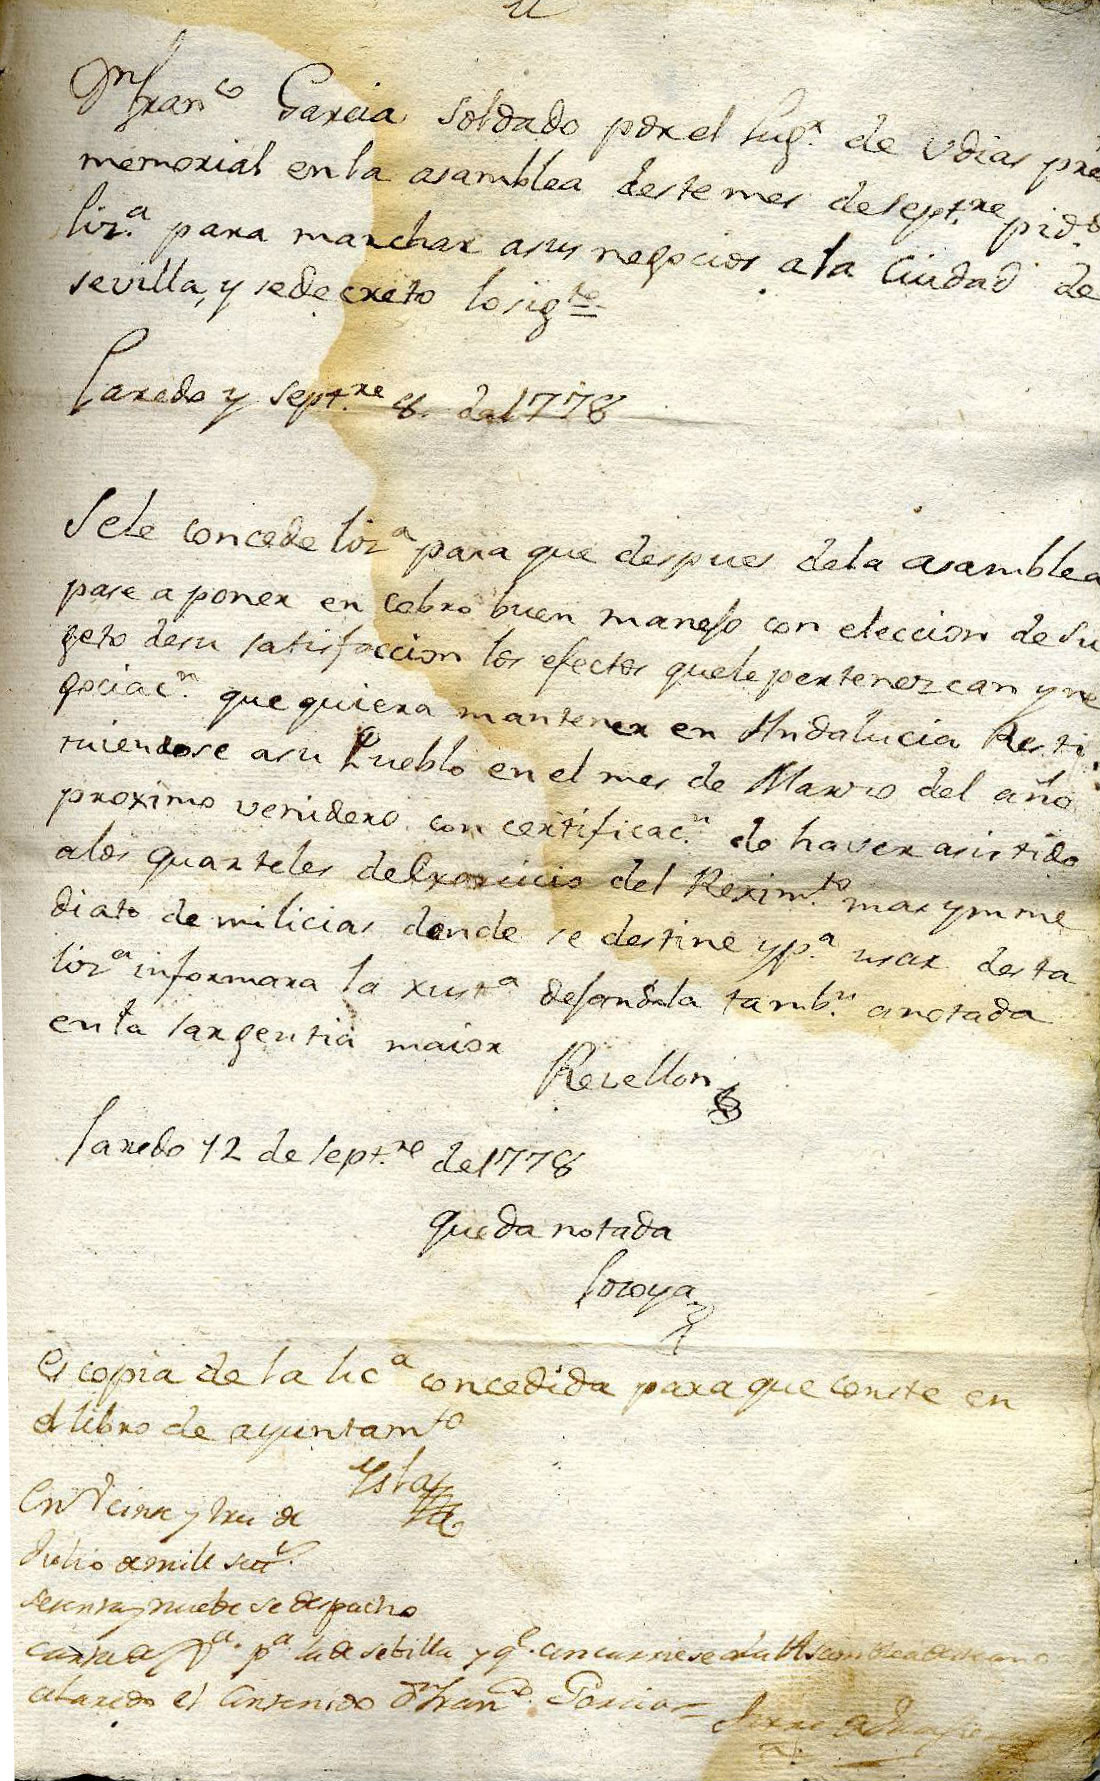 Dn Franco Garcia soldado por el lugr. de Vdias pre
memorial en la asamblea deste mes de septre. pidda
liza. para marchar a sus negocios a la Ciudad de
sevilla, y se decreto lo sigte
Laredo y septre. 8. del 1778
Sele concede liza para que despues dela asamblea
pase a poner en cobro buen manejo con eleccion de su
geto desu satisfaccion los efectos quele pertenezcan y ne
gociacn. que quiera mantener en Andalucia Resti
tuiendose asu Pueblo en el mes de Marzo del año
proximo venidero con certificacn. de haver asistido
alos quarteles de Exercicio del Reximto. mas ymme
diato de milicias donde se destine y pa. usar desta
liza informara la xusta dejandola tambn. anotada
en la sargentia maior
Rezellon
Laredo 12 de septre. del 1778
queda notada
Loroya
Es copia de la lica concedida para que conste en
el libro de ayuntamto
Ysla
En veinte y tres de
Julio de mill settos.
setenta y nuebe se despacho
carta de Va. pa. la de Sebilla y qe. concurriese a la Asamblea
a Laredo el contenido Dn Franco. Garcia